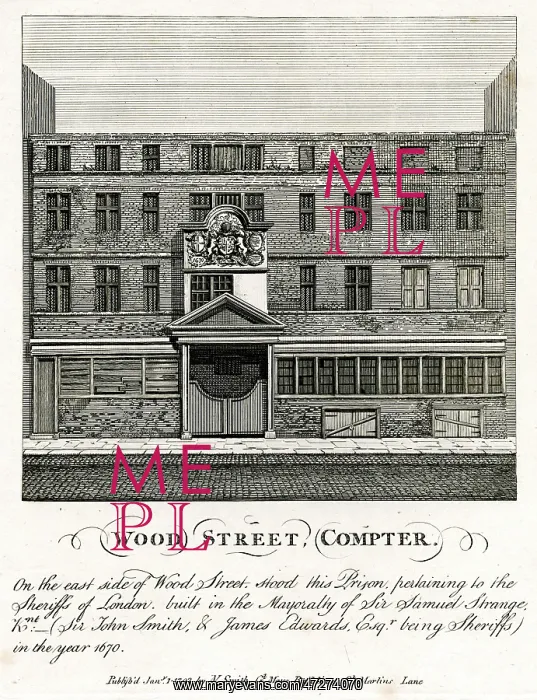 ME
PL
ME
PL
WOOD STREET, COMPTER.
On the east side of Wood Street, stood this Prison, pertaining to the
Sheriffs of London, built in the Mayoralty of Sir Samuel Strange,
Knt. (Sir John Smith, & James Edwards, Esqr. being Sheriffs)
in the year 1670.
Publish'd Jany. 1 by Smith, Martins Lane
www.maryevans.com/47274070